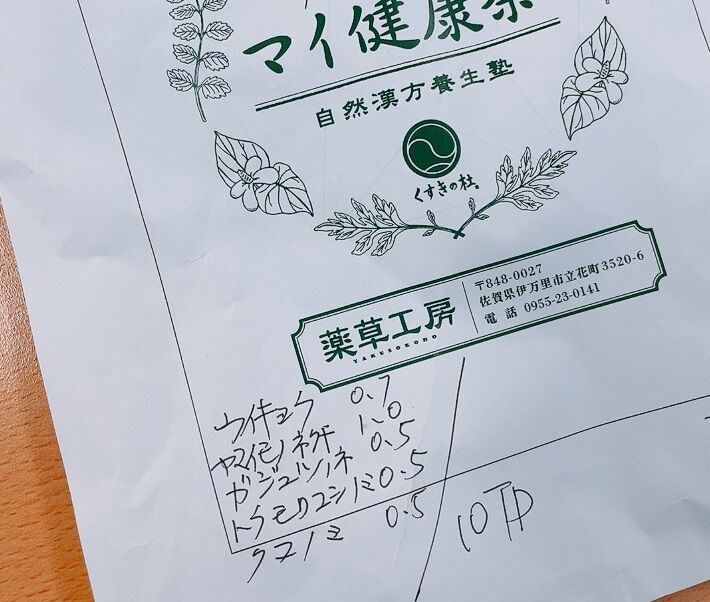 マイ健康茶
自然漢方養生塾
くすきの杜®
薬草工房
YAKUSOKOBO
〒848-0027
佐賀県伊万里市立花町3520-6
電話 0955-23-0141
ウイキョウ 0.7
1.0
ガジュツノネ 0.5
0.5
クコノミ 0.5
10TP